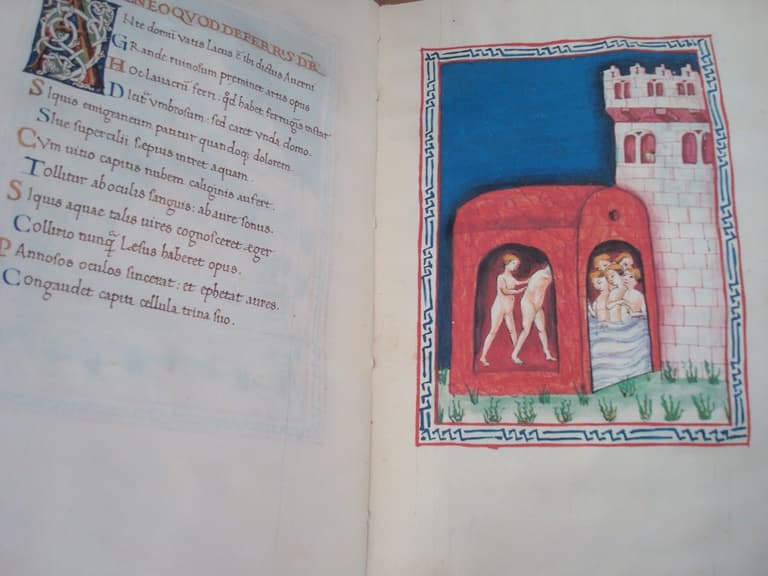 NEO QVOD DE FERRIS DR
Ante domū vatis Lacus ē ibi dictus Averni
Grande ruinosum preminet artis opus
Hoc lavacrū ferri: qd habet ferruginis instar
Dicit umbrosum: sed caret unda domo.
Siquis emigraneum patitur quandoq; dolorem
Sive supercilii sepius intret aquam.
Cum uino capitis nubem caliginis aufert.
Tollitur ab oculis sanguis: ab aure sonus.
Siquis aquae talis uires cognosceret eger
Collirio nunq̄ Lesus haberet opus.
Pannosos oculos sincerat: et ephetat aures.
Congaudet capiti cellula trina suo.